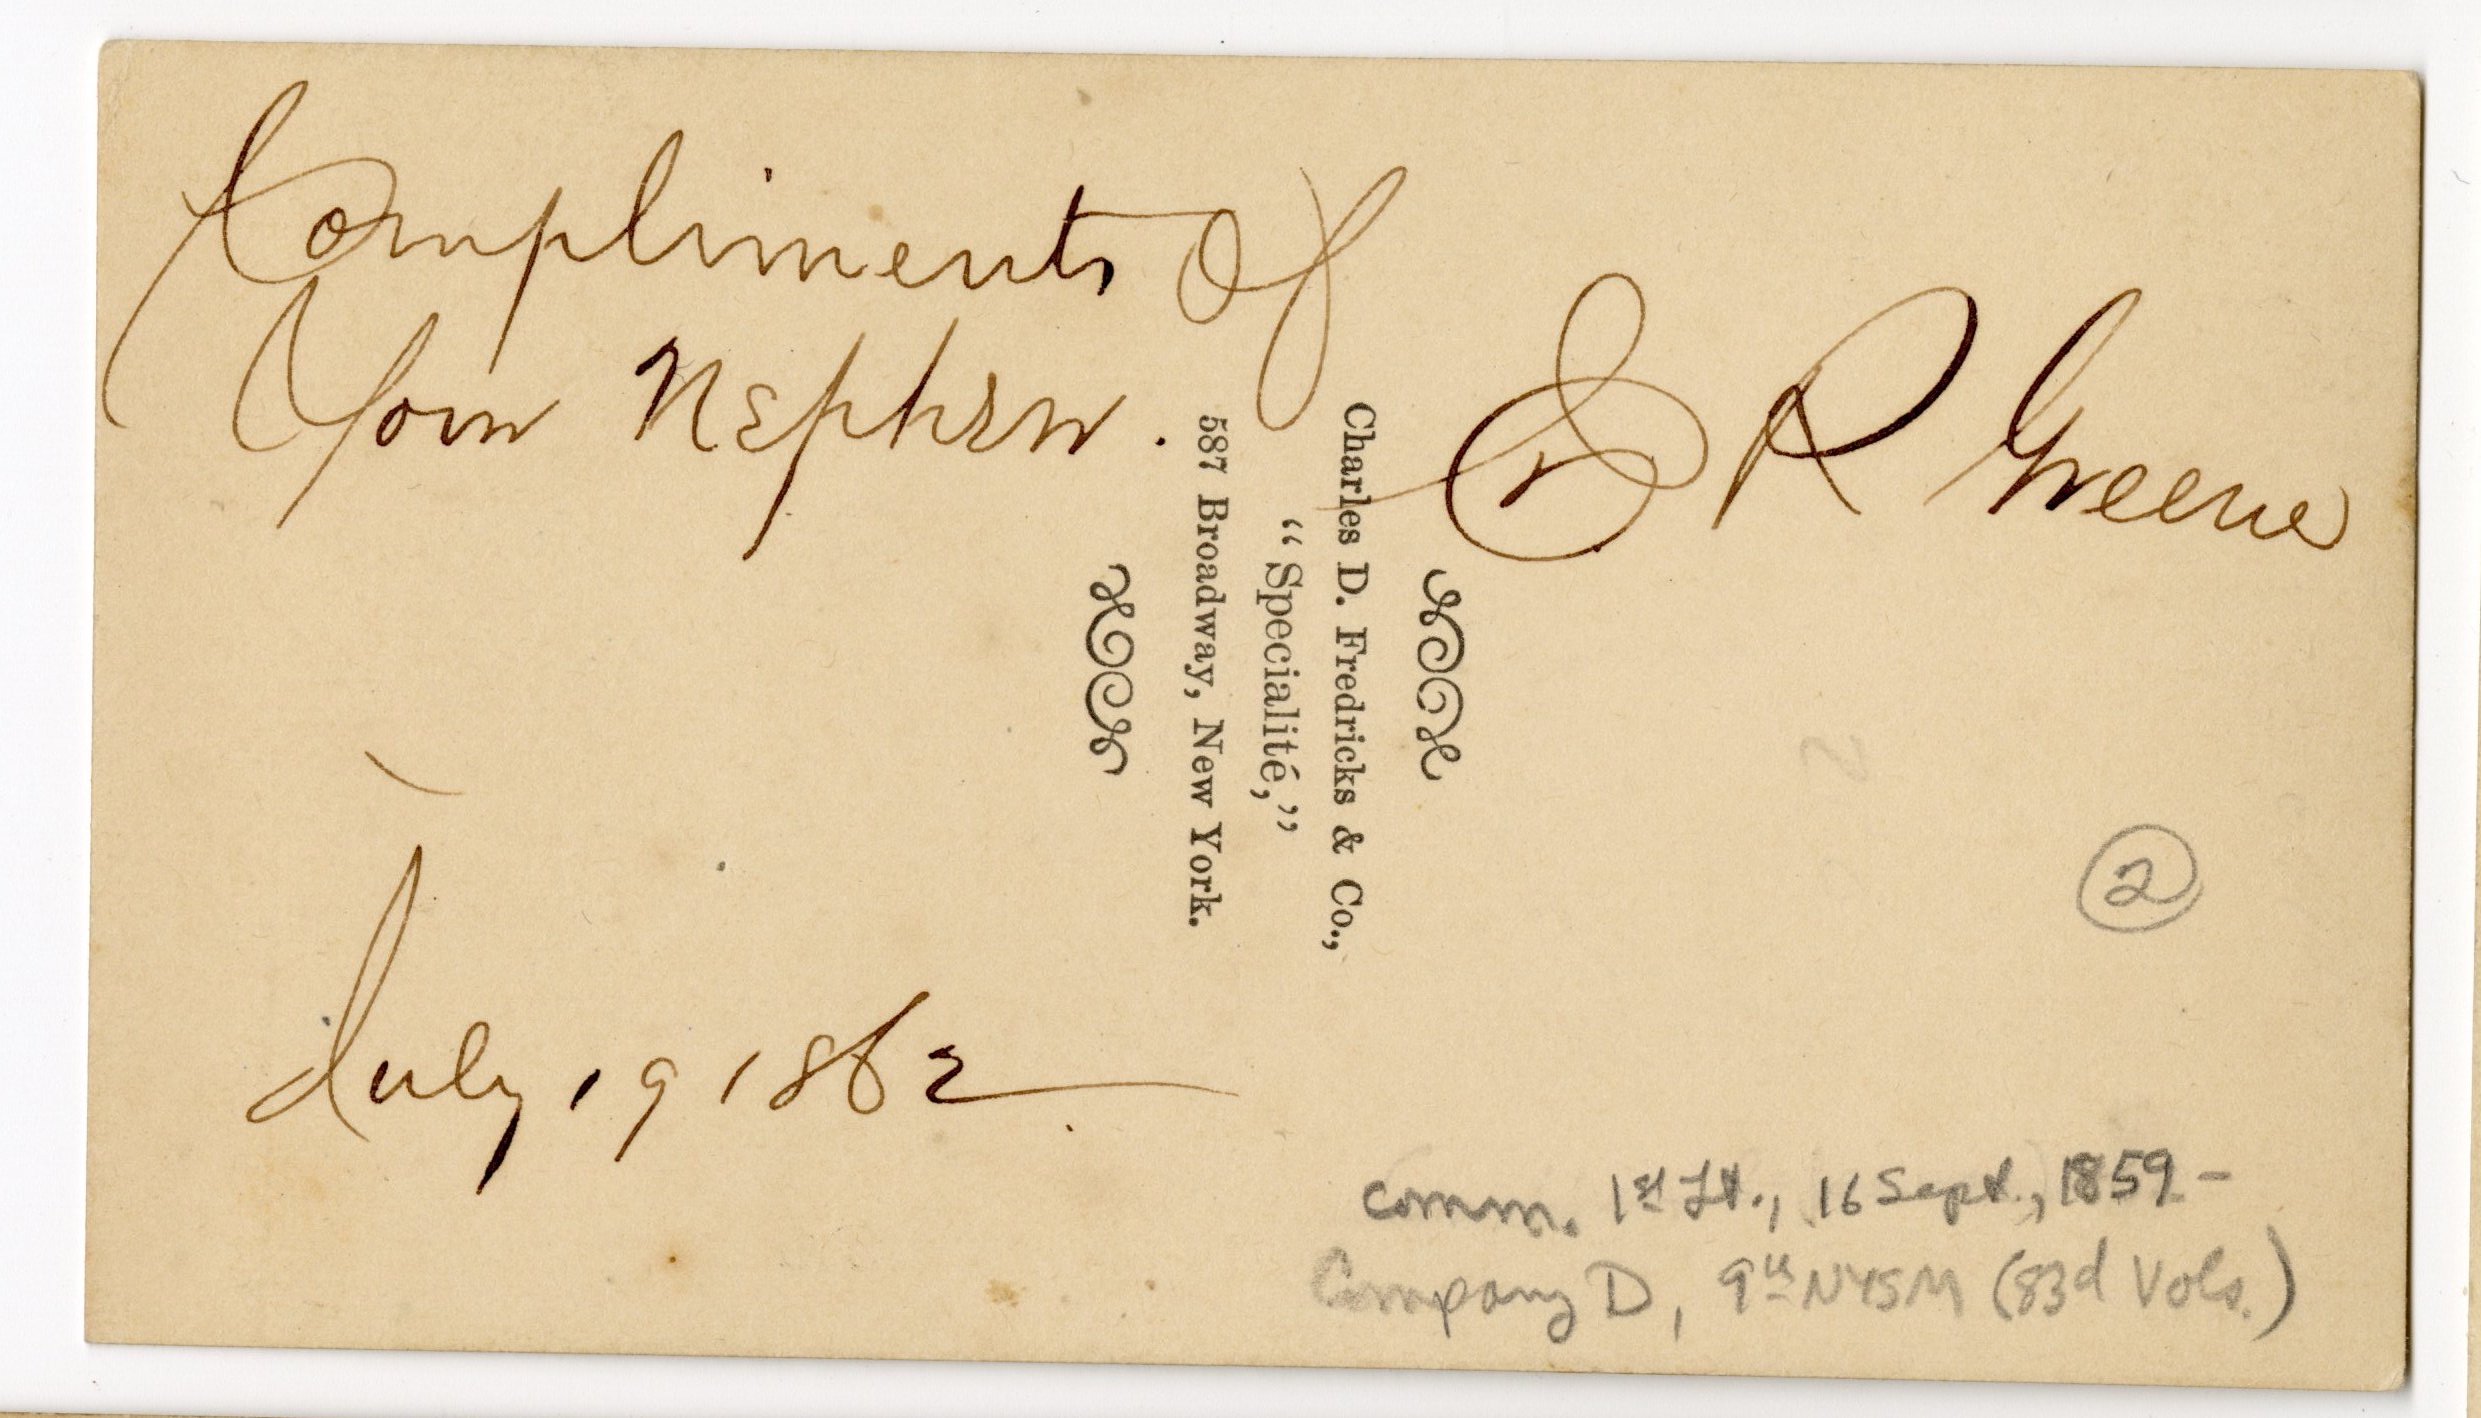 Compliments Of
Your Nephew.
R Greene
Charles D. Fredricks & Co.,
"Specialité,"
587 Broadway, New York.
2
July 19 1862
comm. 1st Lt., 16 Sept., 1859-
Company D, 9th NYSM (83d Vols.)